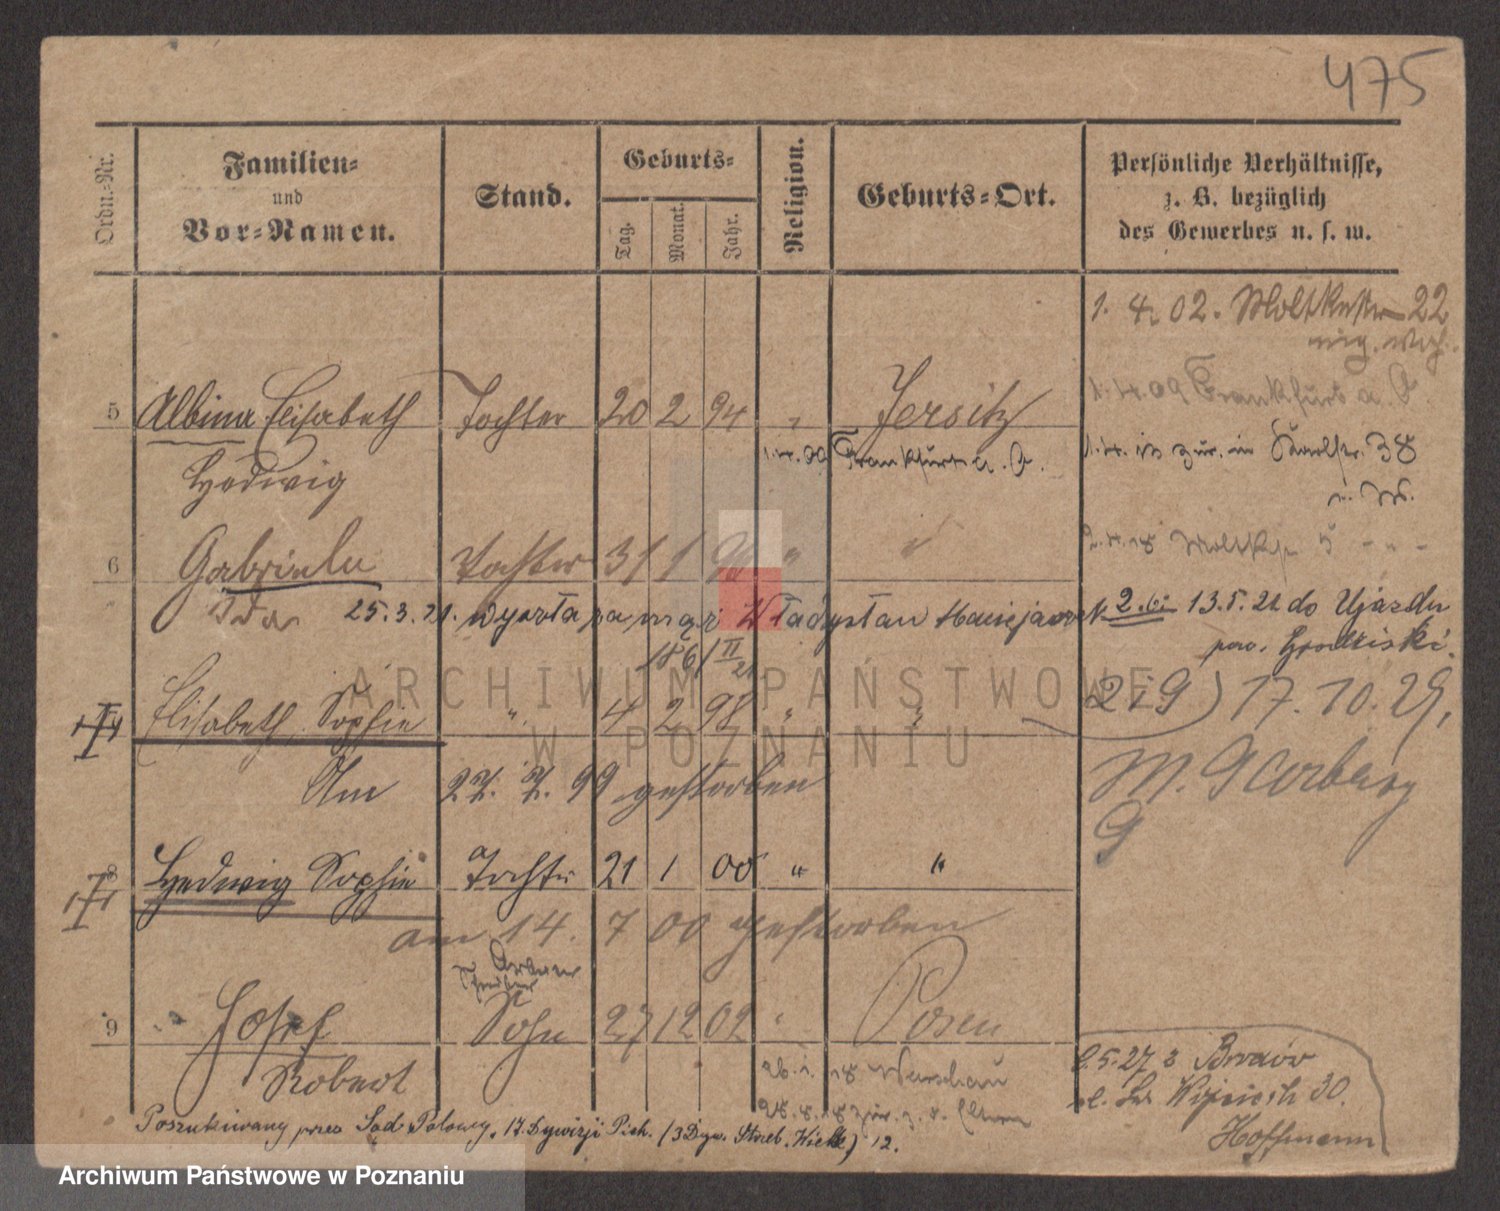 475
Ordn.-Nr.
Familien-
und
Vor-Namen.
Stand.
Geburts-
Tag.
Monat.
Jahr.
Religion.
Geburts-Ort.
Persönliche Verhältnisse,
z. B. bezüglich
des Gewerbes u. s. w.
1. 4. 02. Moltkestr 22
1.4.09 Frankfurt a. O.
5 Albina Elisabeth Tochter 20 2 94 " Jersitz
1.4.09 Frankfurt a. O.
zur. in 38
Hedwig
6 Gabriele Tochter 31 1 96 "
Moltkestr 5 - " -
Ida 25.3.21. wyszła za mąż Władysław Maciejewsk 13.5.21 do Ujazdu
pow. Grodziski.
186/ II 21
Elisabeth Sophie " 4 2 98 " "
219) 17. 10. 29,
Am 27. 7. 99 gestorben
M. Garbary
9
8 Hedwig Sophie Tochter 21 1 00 " "
am 14. 7 00 gestorben
9 Josef Sohn 27 12 02 " Posen
Robert
26. 1. 18 Warschau
28. 8. 18 zur. z. d. Eltern
5.27 z
ul. Św. Wojciech 30.
Hoffmann
Poszukiwany przez Sąd Polowy, 17. Dywizji Piech. (3 Dyw. Strzel. Wielk) 12.
ARCHIWUM PAŃSTWOWE
W POZNANIU
Archiwum Państwowe w Poznaniu